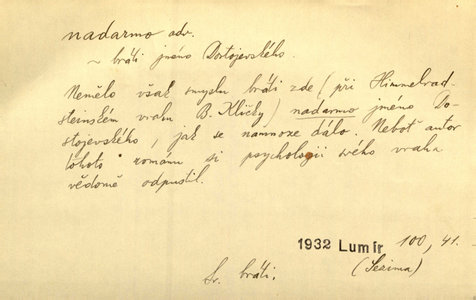 nadarmo adv.
~ bráti jméno Dostojevského.
Nemělo však smyslu bráti zde (při Himmelrad-
šteinském vrahu B. Kličky) nadarmo jméno Do-
stojevského, jak se namnoze dálo. Neboť autor
tohoto románu si psychologii svého vraha
vědomě odpustil.
1932 Lumír 100, 41.
(Sezima)
Sr. bráti.